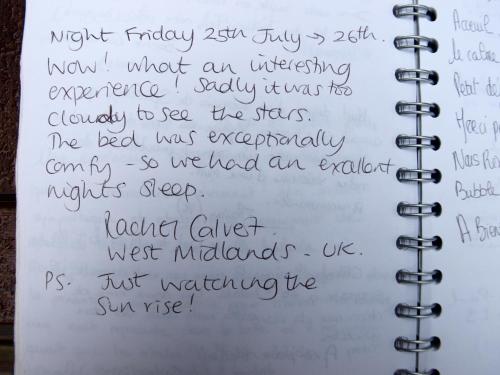 Night Friday 25th July → 26th.
Wow! what an interesting
experience! Sadly it was too
cloudy to see the stars.
The bed was exceptionally
comfy - so we had an excellant
nights sleep.
Rachel Calvest.
West Midlands - UK.
PS. Just watching the
Sun rise!
Accueil
le calme
Petit de
Merci p
Nous
Bubble
A Bien